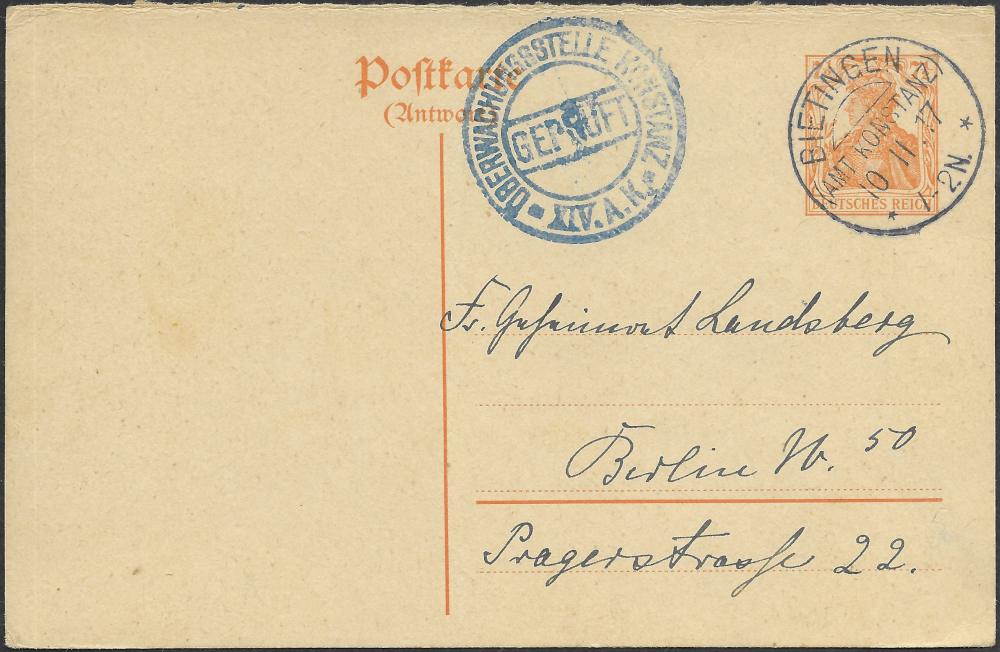 Postkarte
(Antwort)
ÜBERWACHUNGSSTELLE KONSTANZ
GEPRÜFT
XIV. A. K.
BIETINGEN
(AMT KONSTANZ)
10 11 17
1-2N.
DEUTSCHES REICH
Fr. Geheimrat Landsberg
Berlin W. 50
Pragerstrasse 22.